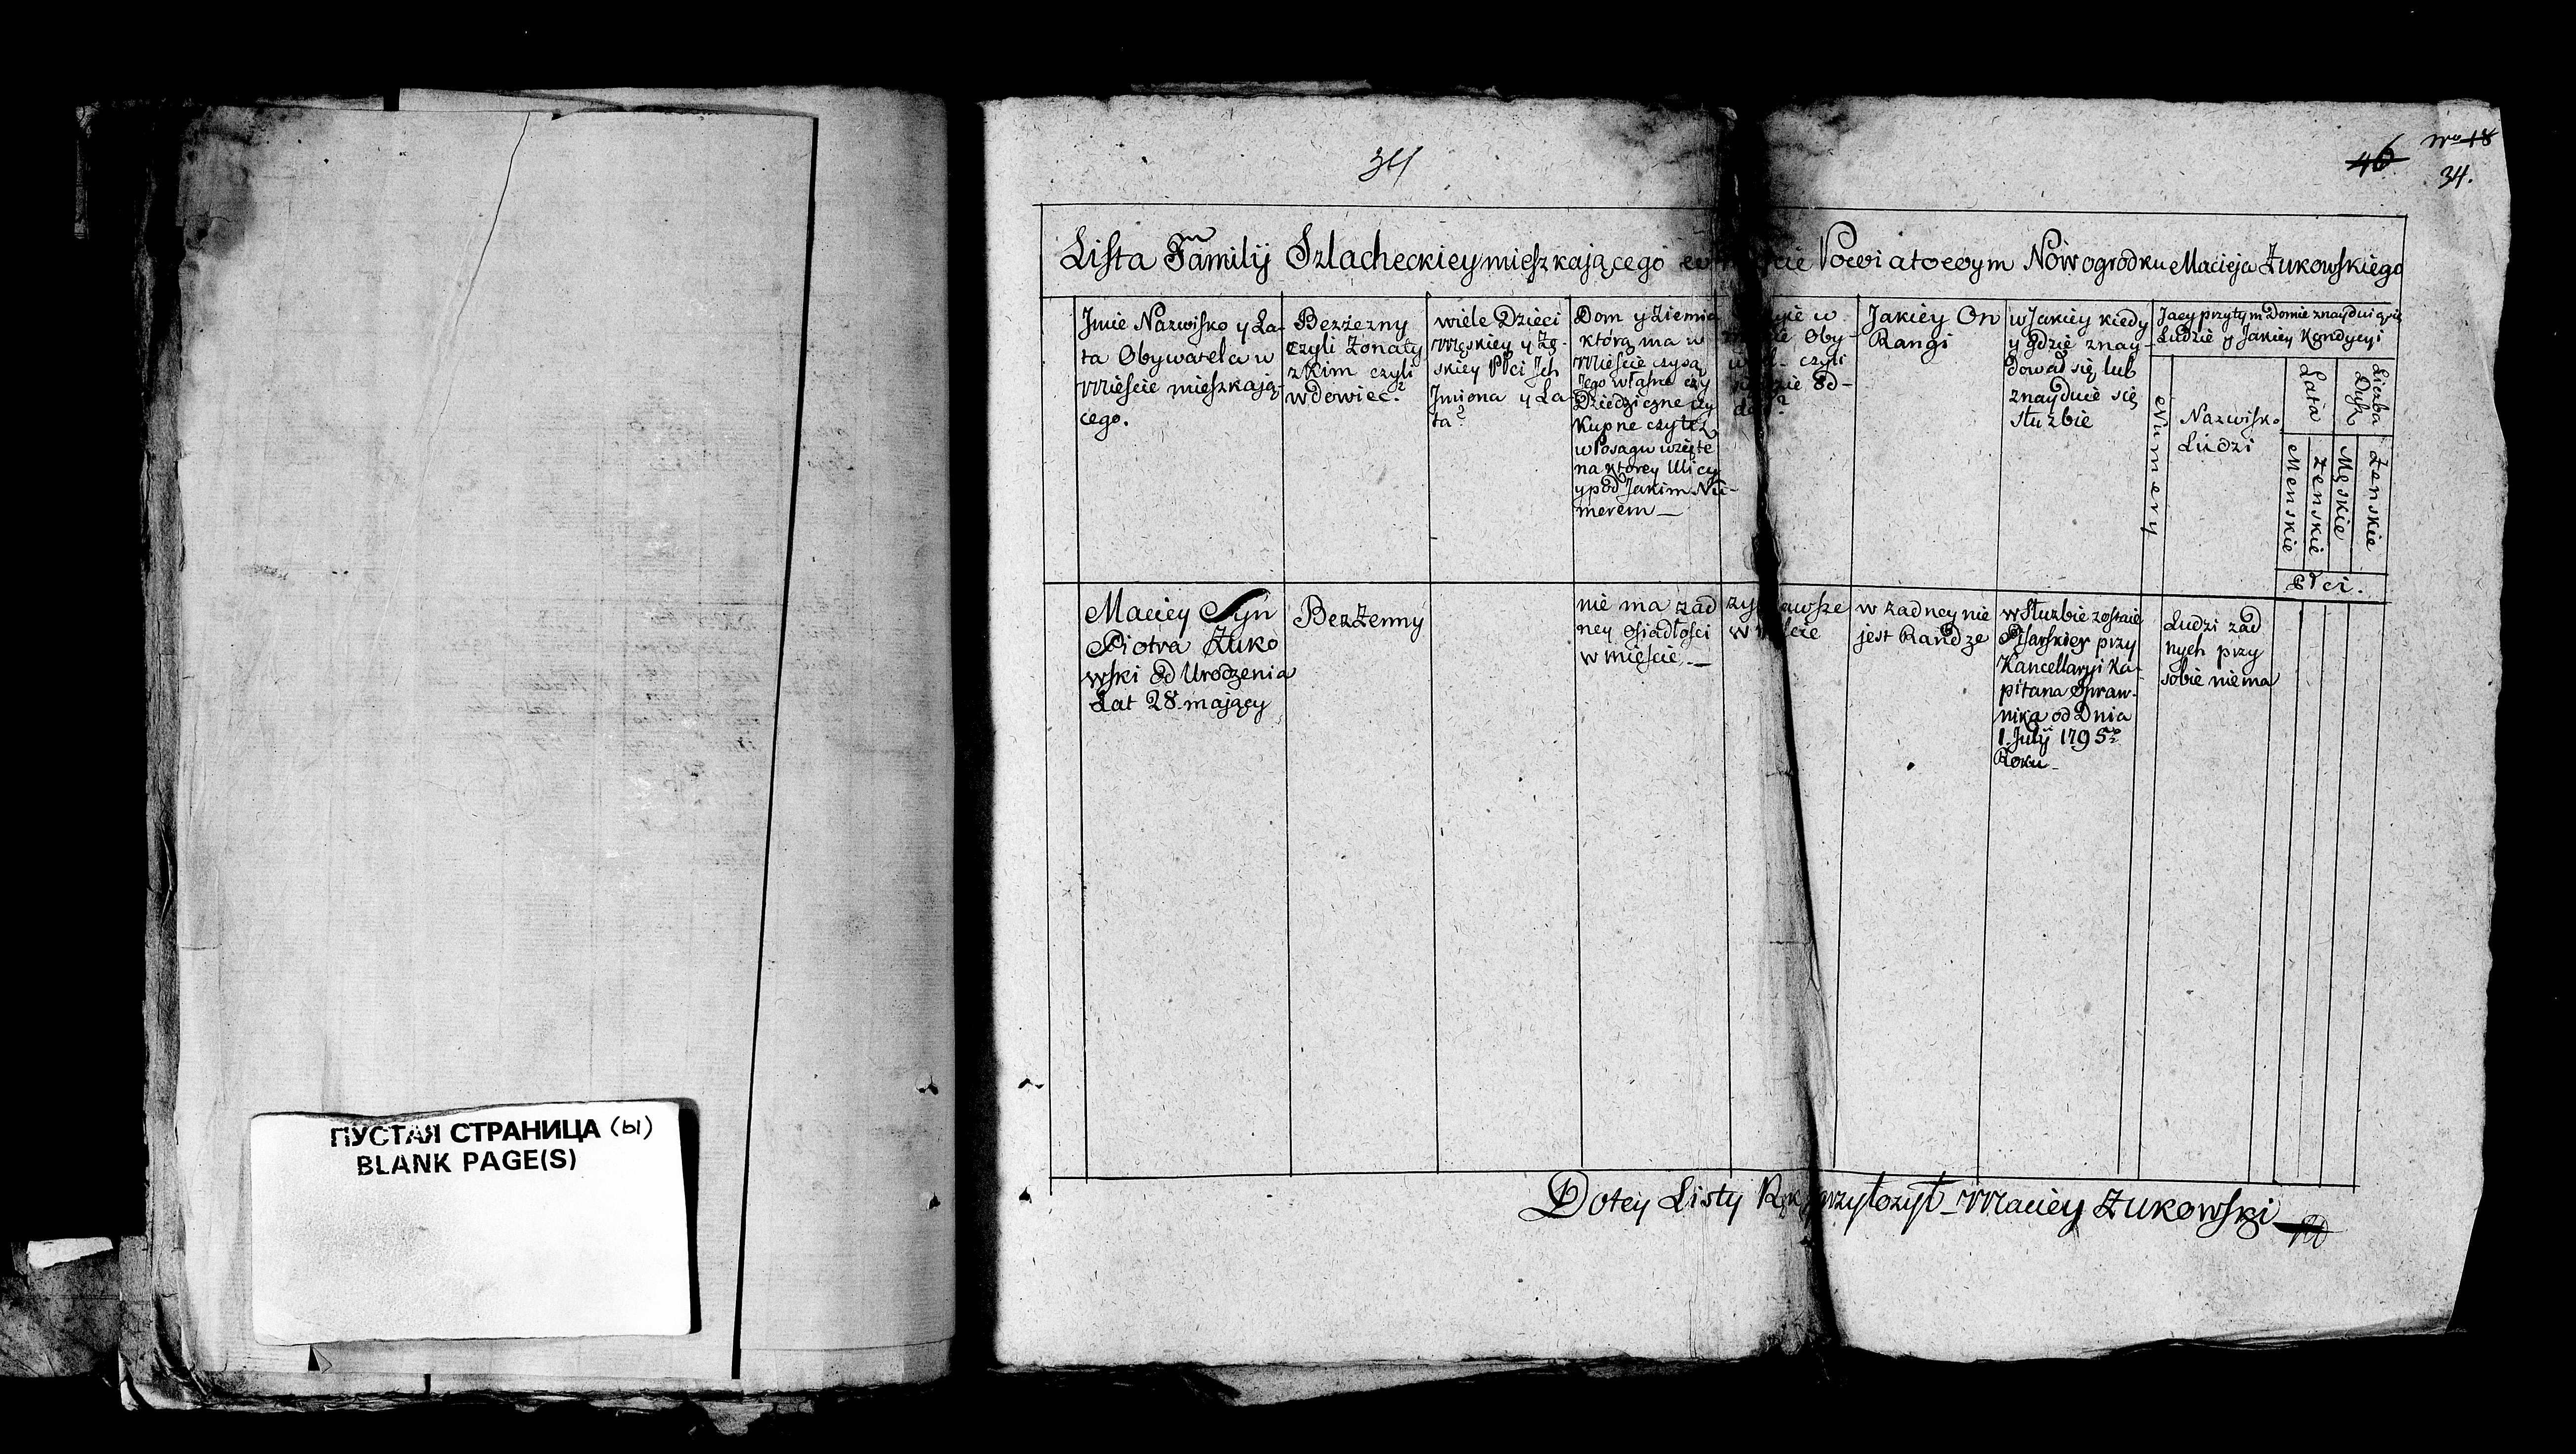 34
46
Nro 18
34.
Lista Familij Szlacheckiey mieszkaiącego w Powiatowym Nowogrodku Macieja Żukowskiego
Jmie Nazwisko y La-
ta Obywatela w
Mieście mieszkają-
cego.
Bezżenny
czyli Żonaty
z kim czyli
wdowiec?
wiele Dzieci
Męskiey y Że-
skiey Płci Jch
Jmiona y La-
ta?
Dom y Ziemia
którą ma w
Mieście czy są
Jego własne czy
Dziedziczne czy
Kupne czy też
w Posagu wzięte
na którey Ulicy
y pod Jakim Nu-
merem
w
Oby-
czyli
gdzie od-
Jakiey On
Rangi
w Jakiey kiedy
y gdzie znay-
dował się lub
znayduie się
służbie
Jacy przy tym Domie znayduią się
Ludzie y Jakiey Kondycyi
Numery
Nazwisko
Ludzi
Lata
Liczba
Dusz
Menskie
Żenskie
Męskie
Żenskie
Płci.
Maciey Syn
Piotra Żuko
wski od Urodzenia
Lat 28 mający
BezŻenny
nie ma żad
ney osiadłości
w mieście
zawsze
w mieście
w żadney nie
jest Randze
w Służbie zostaie
Pisarskiey przy
Kancellaryi Ka-
pitana Spraw-
nika od Dnia
1. Julij 1795go
Roku
Ludzi żad
nych przy
sobie niema
Do tey Listy Rękę przyłożył Maciey Żukowski
ПУСТАЯ СТРАНИЦА (ы)
BLANK PAGE(S)